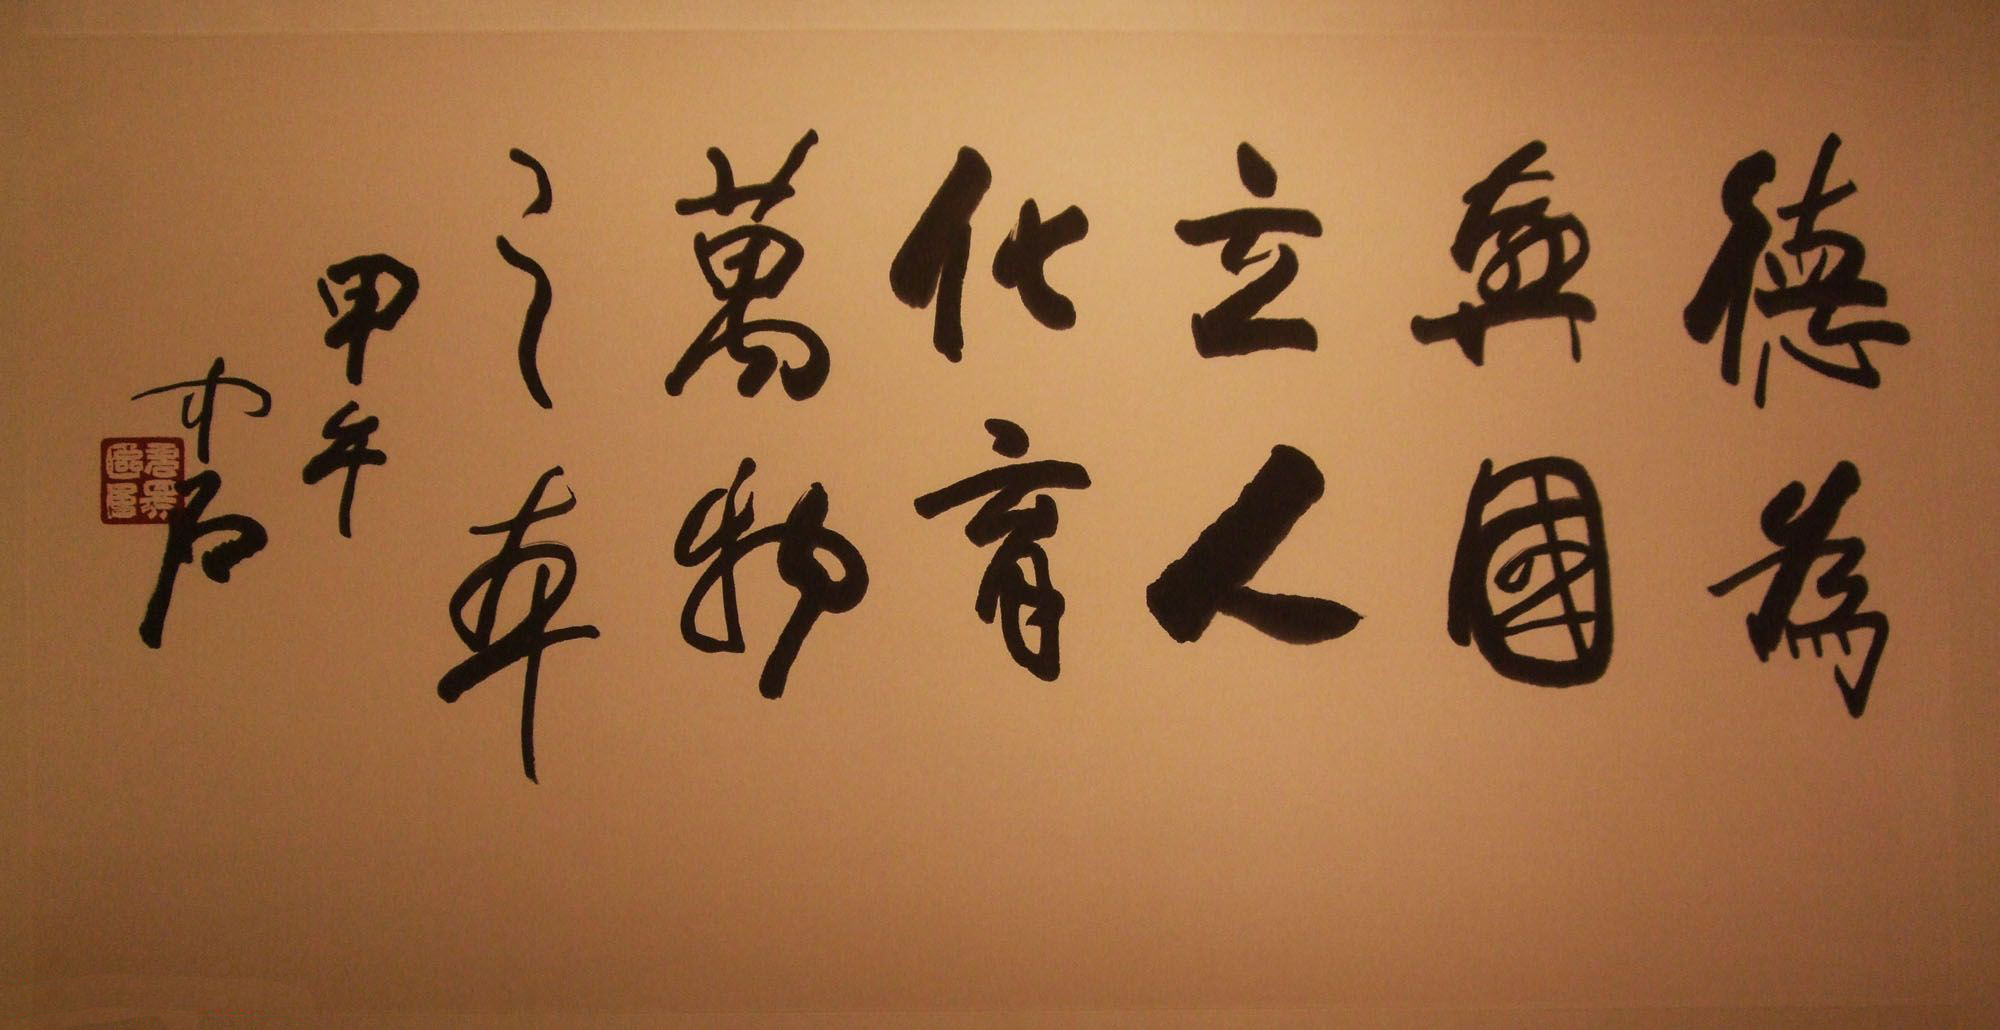 德為
興國
立人
化育
萬物
之車
甲午
中石